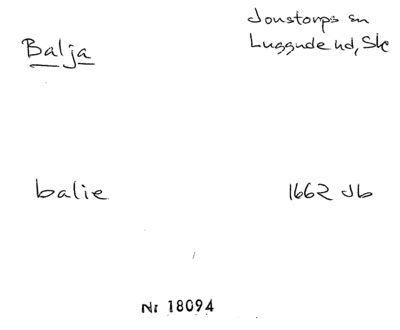 Jonstorps sn
Balja
Luggude hd, Sk
balie
1662 Jb
Nr 18094